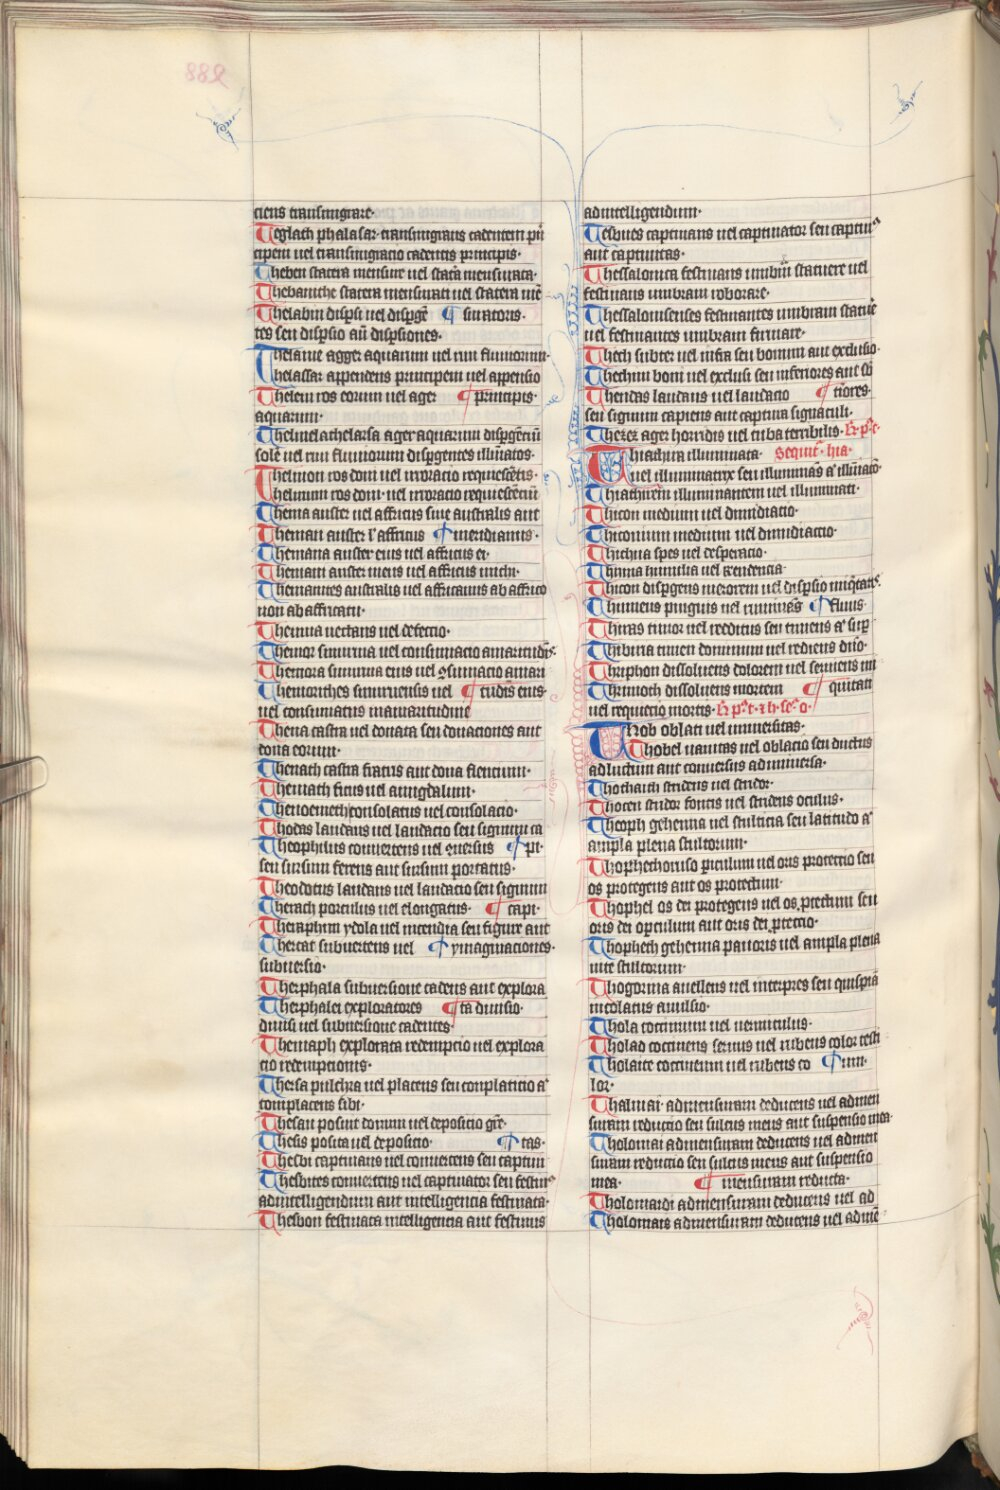 ciens transmigrare·
Teglath phalasar transmigrans cadentem prin
cipem uel transmigracio cadentis principis·
Theben statera mensure uel statera mensurata·
Thebaniche statera mensurati uel statera me
Thelabin dispersi uel disperge ¶ suratoris·
tes seu dispersio aut dispersiones·
Thelaine agger aquarum uel riui fluuiorum·
Thelassar appendens principem uel appensio
Thelem ros eorum uel ager ¶ principis·
aquarum·
Thelmelathelarsa ager aquarum
solem uel riui fluuiorum dispergentes illuminatos·
Thelmon ros doni uel inroracio requiescentis·
Thelmum ros doni· uel inroracio requiescencium
Thema auster uel affricus siue australis aut
Theman auster uel affricus ¶ meridianus·
Themana auster eius uel affricus ei·
Themani auster meus uel affricus michi·
Themanites australis uel affricanus ab affrico
non ab affricatu·
Themna nectans uel defectio·
Themor smirna uel consumacio amaritudinis·
Themora smirna eius uel consumacio amari
Themorithes smirnensis uel ¶ tudis eius·
uel consumatus in amaritudine
Thena castra uel donata seu donaciones aut
dona eorum·
Thenath castra fratris aut dona flencium·
Thenath ficus uel amigdalum·
consolatus uel consolacio·
Thodas laudans uel laudacio seu signum ca
Theophilus conuertens uel conuersus ¶ pi·
seu sursum ferens aut sursum portatus·
Theodotus laudans uel laudacio seu signum
Therach porculus uel elongatus· ¶ capi·
Theraphim ydola uel incendia seu figure aut
Thercat subuertens uel ¶ ymaginaciones·
subuersio·
Therphala subuersione cadens aut explora
Therphalei exploratores ¶ ta diuisio·
diuisi uel subuersione cadentes·
Thersaph explorata redempcio uel explora
cio redempcionis·
Thersa pulchra uel placens seu conplatitio aut
complacens sibi·
Thesau posuit domum uel deposicio gre·
Thesis posita uel deposicio· ¶ tas·
Thesbi captiuans uel conuertens seu captiui
Thesbites conuertens uel captiuator seu festinus
ad intelligendum aut intelligencia festinata·
Thesbon festinata intelligencia aut festinus
ad intelligendum·
Thesbues captiuans uel captiuator seu captiuus
aut captiuitas·
Thessalonica festinans umbram statuere uel
festinans umbram roborare·
Thessalonicenses festinantes umbram statuere
uel festinantes umbram firmare·
Thech subter uel infra seu bonum aut exclusio·
Thechim boni uel exclusi seu inferiores aut
Theudas laudans uel laudacio ¶ tiores·
seu signum capiens aut captura signaculi·
Thezer ager horridus uel tuba terribilis·
Thiathira illuminata· Sequitur· thia·
uel illuminatrix seu illuminans aut illuminatio·
Thiathirem illuminantem uel illuminati·
Thicon medium uel dimidiatio·
Thiconium medium uel dimidiactio·
Thichua spes uel desperacio·
Thinna humilia uel
Thicon dispergens merorem uel dispersio iniquitatis·
Thimeus pinguis uel ¶ fluuis·
Thiras timor uel reditus seu timens aut super
Thibiria timen dominum uel rediens domino·
Thriphon dissoluens dolorem uel seruiens in
Thrimoth dissoluens mortem ¶ quitati
uel requiecio mortis·
Thob oblati uel uniuersitas·
Thobel uanitas uel oblacio seu ductus
ad luctum aut conuersus ad uniuersa·
Thochaim stridens uel stridor·
Thocen stridor fontis uel stridens oculus·
Theoph gehenna uel stulticia seu latitudo aut
ampla plena stultorum·
periculum uel oris protectio seu
os protegens aut os protectum·
Thophel os dei protegens uel os protectum seu
oris dei operculum aut oris dei protectio·
Thopheth gehenna pauoris uel ampla plena
uite stultorum·
Thogorma auellens uel interpres seu quispiam
incolatus auulsio·
Thola coccinum uel uermiculus·
Tholad coccineus seruus uel rubens color
Tholaite coccineum uel rubens co ¶
lor·
Thalmai· ad mensuram deducens uel ad men
suram reductio seu sulcus meus aut suspensio mea·
Tholomai ad mensuram deducens uel ad men
suram reductio seu sulcus meus aut suspensio
mea· ¶ mensuram reducta·
Tholomardi ad mensuram deducens uel ad
Tholomais ad mensuram deducens uel ad me